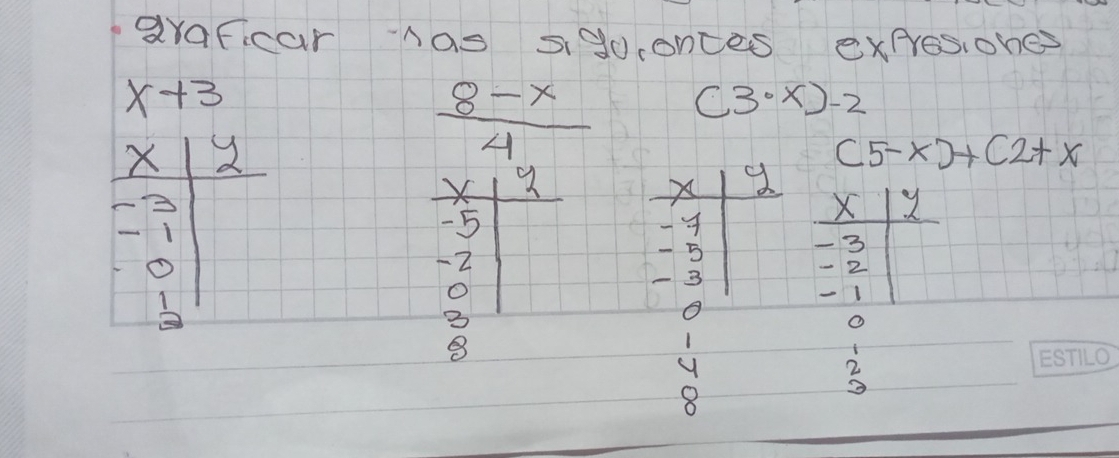 graficar las siguientes expresiones
x+3
8-x
4
(3·x)-2
(5-x)+(2+x
x | y
-3
-1
0
1
3
x | y
-5
-2
0
3
8
x | y
-7
-5
-3
0
1
4
8
x | y
-3
-2
-1
0
1
2
3
ESTILO